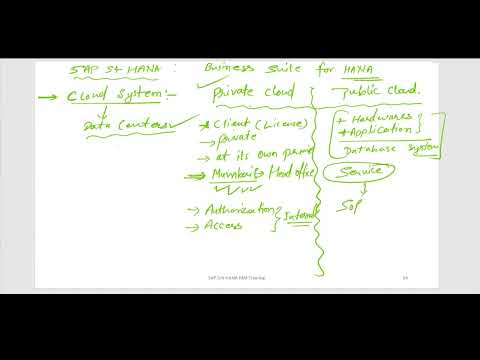 SAP S4 HANA : Business Suite for HANA
→ Cloud System:-
Data Centers
Private cloud
* Client (License)
→ Private
→ at its own
→ Mumbai → Head office
→ Authorization
→ Access
Internal
Public Cloud.
+ Hardwares
+ Application
Database System
Service
SAP S/4 HANA MM Training